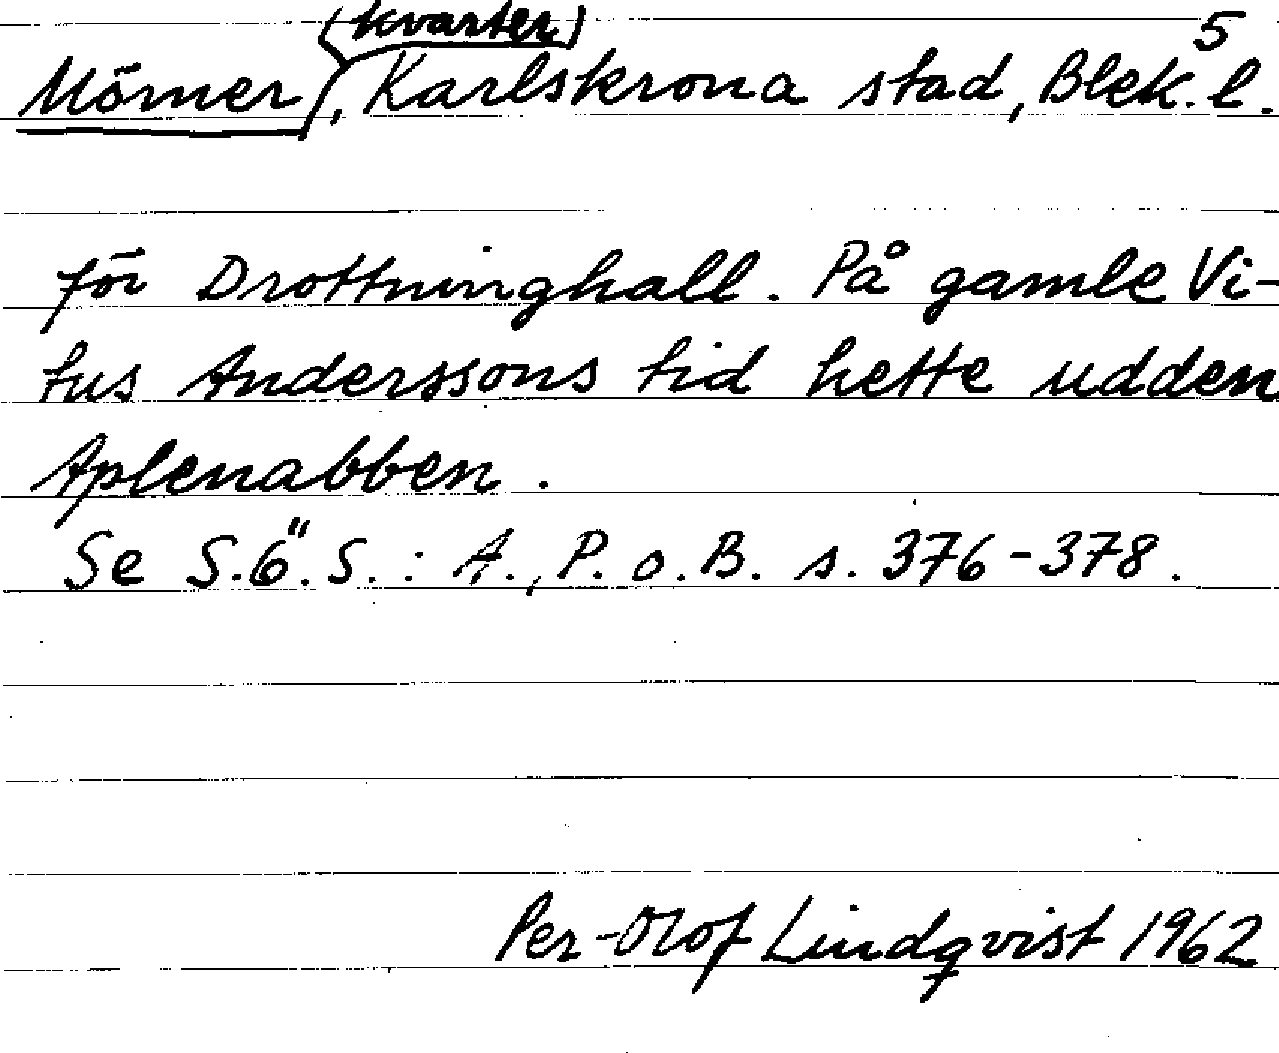 (kvarter) 5
Mörner, Karlskrona stad, Blek. l.
för Drottninghall. På gamle Vi-
tus Anderssons tid hette udden
Aplenabben.
Se S.Ö.S.: A., P. o. B. s. 376-378.
Per-Olof Lindqvist 1962